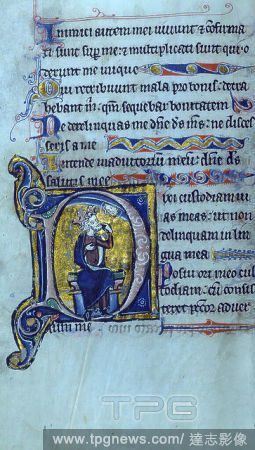 Inimici autem mei vivunt & confirma
ti sunt sup me: & multiplicati sunt qui o
derunt me inique
Qui retribuunt mala pro bonis: detra
hebant m: qm sequebar bonitatem
Ne derelinquas me dne ds ms: ne disces
seris a me
Intende in adiutoriu meu: dne ds
salutis mee
Dixi custodiam ui
as meas: ut non
delinquam in lin
gua mea
Posui ori meo cus
todiam: cu consis
teret pctor aduer
sum me
TPG
www.tpgnews.com/達志影像